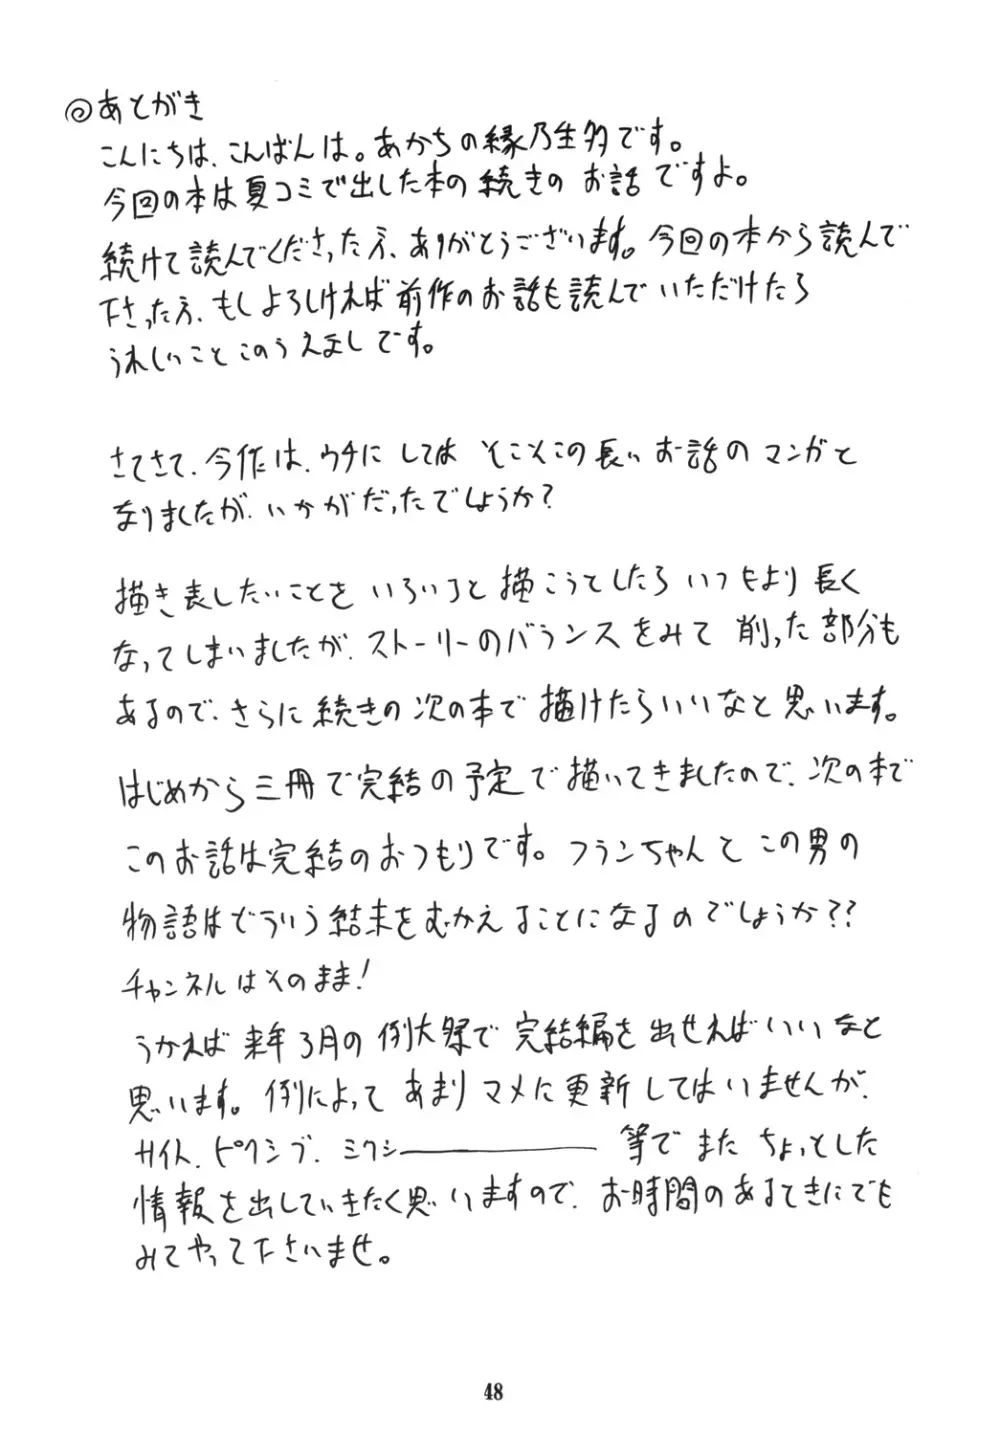 ◎あとがき
こんにちは、こんばんは。あかちの縁乃生多です。
今回の本は夏コミで出した本の続きのお話ですよ。
続けて読んでくださった方、ありがとうございます。今回の本から読んで
下さった方、もしよろしければ前作のお話も読んでいただけたら
うれしいことこのうえましです。
さてさて、今作は、ウチにしてはそこそこの長いお話のマンガと
なりましたが、いかがだったでしょうか?
描き表したいことをいろいろと描こうとしたらいつもより長く
なってしまいましたが、ストーリーのバランスをみて削った部分も
あるので、さらに続きの次の本で描けたらいいなと思います。
はじめから三冊で完結の予定で描いてきましたので、次の本で
このお話は完結のおつもりです。フランちゃんとこの男の
物語はどういう結末をむかえることになるのでしょうか??
チャンネルはそのまま!
うかえば来年3月の例大祭で完結編を出せればいいなと
思います。例によってあまりマメに更新してはいませんが、
サイト、ピクシブ、ミクシー――――――等でまたちょっとした
情報を出していきたく思いますので、お時間のあるときにでも
みてやって下さいませ。
48